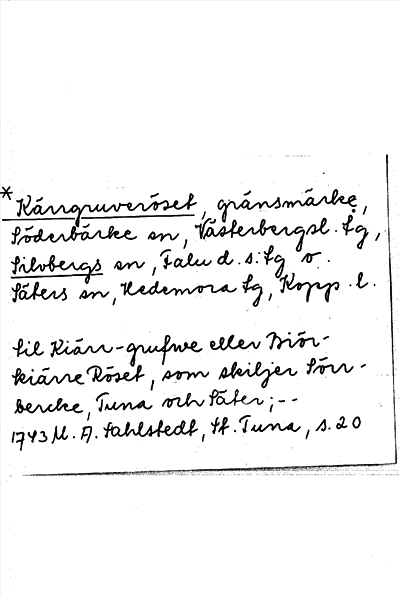 * Kärrgruveröset, gränsmärke,
Söderbärke sn, Västerbergsl. tg,
Silvbergs sn, Falu d. s:s tg o.
Säters sn, Hedemora tg, Kopp. l.
til Kiärr-grufwe eller Biör-
kiärre Röset, som skiljer Sörr-
bercke, Tuna och Säter; --
1743 M. A. Sahlstedt, St. Tuna, s. 20